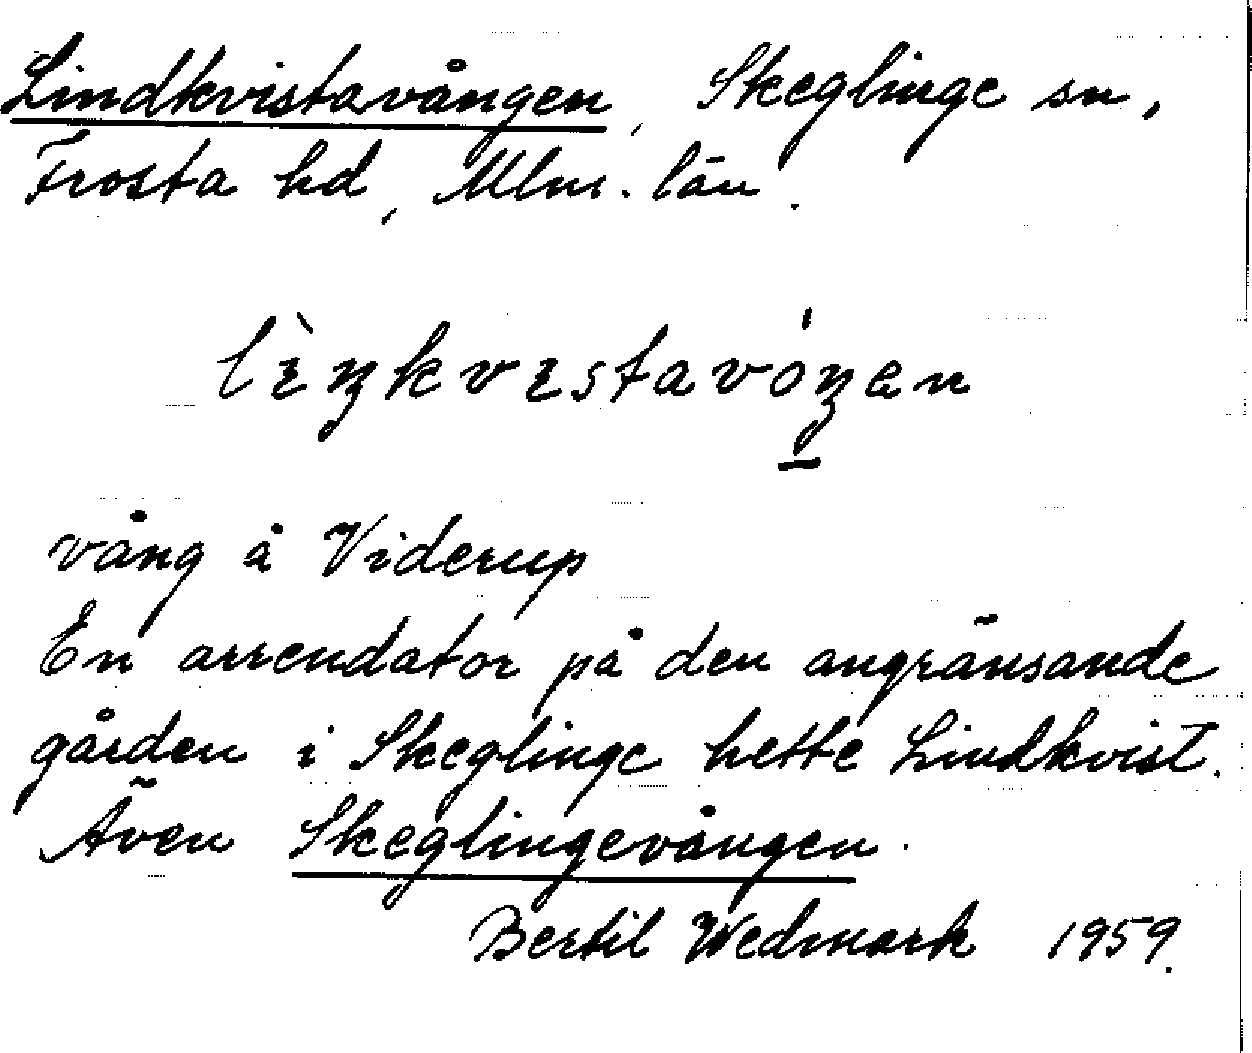 Lindkvistavången, Skeglinge sn,
Frosta hd, Mlm. län.
vång å Viderup
En arrendator på den angränsande
gården i Skeglinge hette Lindkvist.
Även Skeglingevången.
Bertil Wedmark 1959.